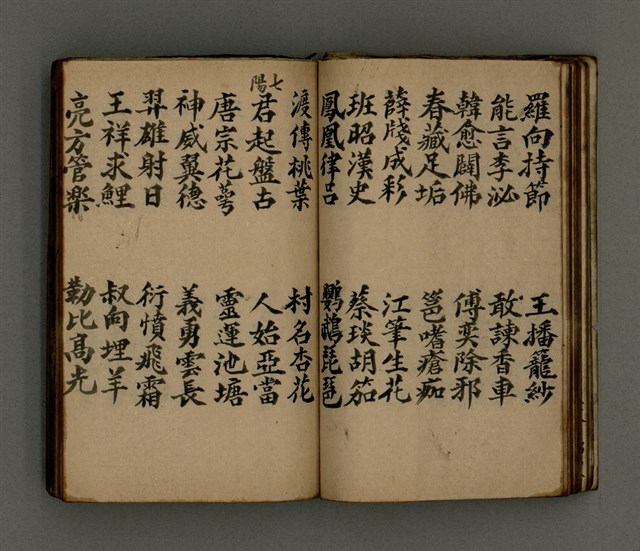 羅向持節 王播籠紗
能言李泌 敢諫香車
韓愈闢佛 傅奕除邪
春藏足垢 邕嗜瘡痂
薛牋成彩 江筆生花
班昭漢史 蔡琰胡笳
鳳凰律呂 鸚鵡琵琶
渡傳桃葉 村名杏花
七陽
君起盤古 人始亞當
唐宗花萼 靈運池塘
神威翼德 義勇雲長
羿雄射日 衍憤飛霜
王祥求鯉 叔向埋羊
亮方管樂 勒比高光